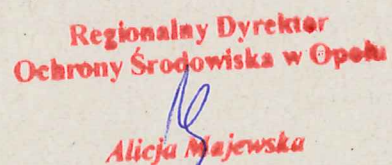 Regionalny Dyrektor
Ochrony Środowiska w Opolu
Alicja Majewska